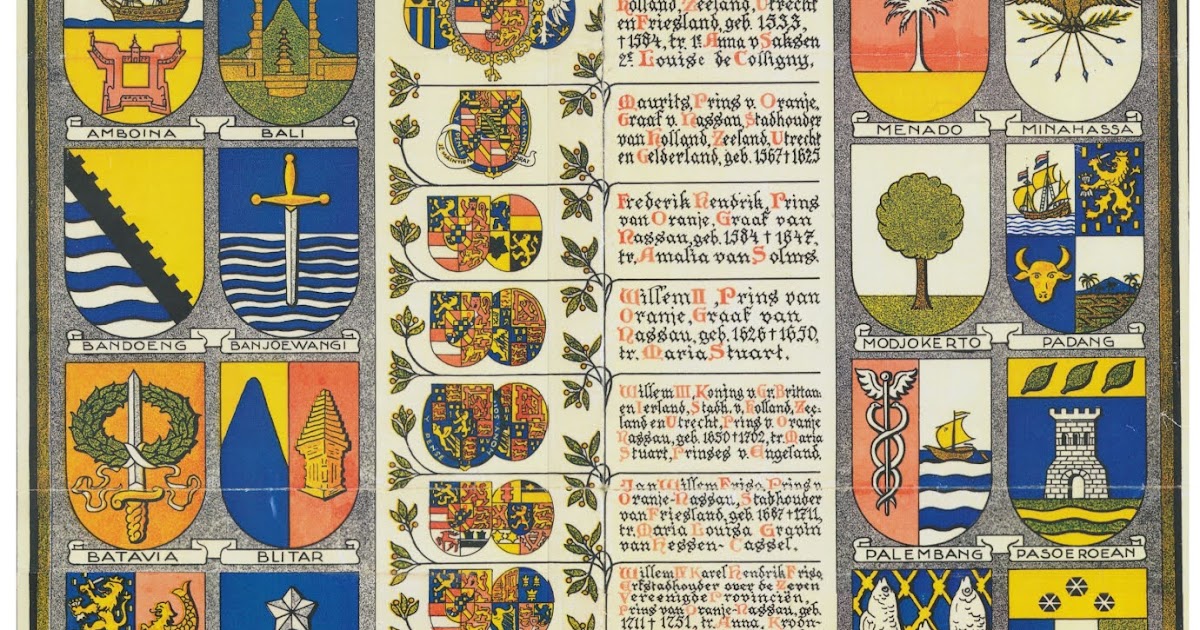 AMBOINA
BALI
BANDOENG
BANJOEWANGI
BATAVIA
BLITAR
Holland, Zeeland, Utrecht
en Friesland, geb. 1533,
†1584, tr. 1e Anna v Saksen
2e Louise de Colligny.
Maurits, Prins v. Oranje,
Graaf v. Nassau, Stadhouder
van Holland, Zeeland, Utrecht
en Gelderland, geb. 1567†1625
Frederik Hendrik, Prins
van Oranje, Graaf van
Nassau, geb. 1584 † 1647,
tr. Amalia van Solms.
Willem II, Prins van
Oranje, Graaf van
Nassau, geb. 1626 † 1650,
tr. Maria Stuart.
Willem III, Koning v. Gr. Brittan.
en Ierland, Stadh. v. Holland, Zee-
land en Utrecht, Prins v. Oranje
Nassau, geb. 1650†1702, tr. Maria
Stuart, Prinses v. Engeland.
Jan Willem Friso, Prins v.
Oranje-Nassau, Stadhouder
van Friesland, geb. 1687†1711,
tr. Maria Louisa Gravin
van Hessen-Cassel.
Willem IV Karel Hendrik Friso,
Erfstadhouder over de Zeven
Vereenigde Provinciën,
Prins van Oranje-Nassau, geb.
1711 † 1751, tr. Anna, Kroon-
MENADO
MINAHASSA
MODJOKERTO
PADANG
PALEMBANG
PASOEROEAN